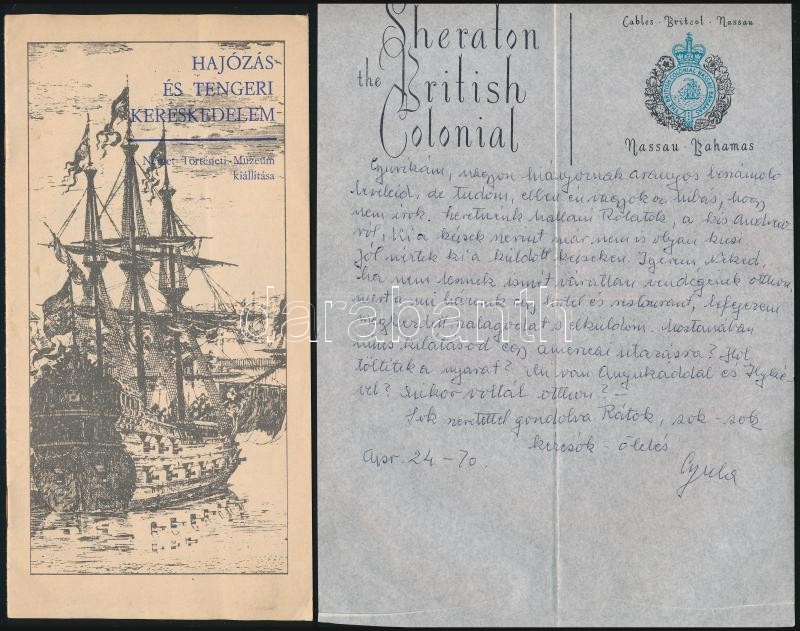 HAJÓZÁS
ÉS TENGERI
KERESKEDELEM
A Német Történeti Múzeum
kiállítása
Sheraton
the British
Colonial
Cables - Britcol - Nassau
Nassau - Bahamas
Gyurikám, nagyon hiányoznak aranyos beszámoló
leveleid, de tudom, ebben én vagyok a hibás, hogy
nem írok. Szeretnénk hallani Rólatok, a kis
ról, ki a képek szerint már nem is olyan kicsi
Jól néztek ki a küldött képeken. Igérem Neked,
ha nem lesznek ismét váratlan vendégeink otthon,
mert a mi házunk egy hotel és restaurant, befejezem
megkezdett szalagodat s elküldöm. Mostanában
nincs kilátásod egy amerikai utazásra? Hol
töltitek a nyarat? Mi van Anyukáddal és
vel? Mikor voltál otthon? —
Sok szeretettel gondolva Rátok, sok-sok
csók - ölelés
Apr. 24 - 70.
Gyula
darabanth